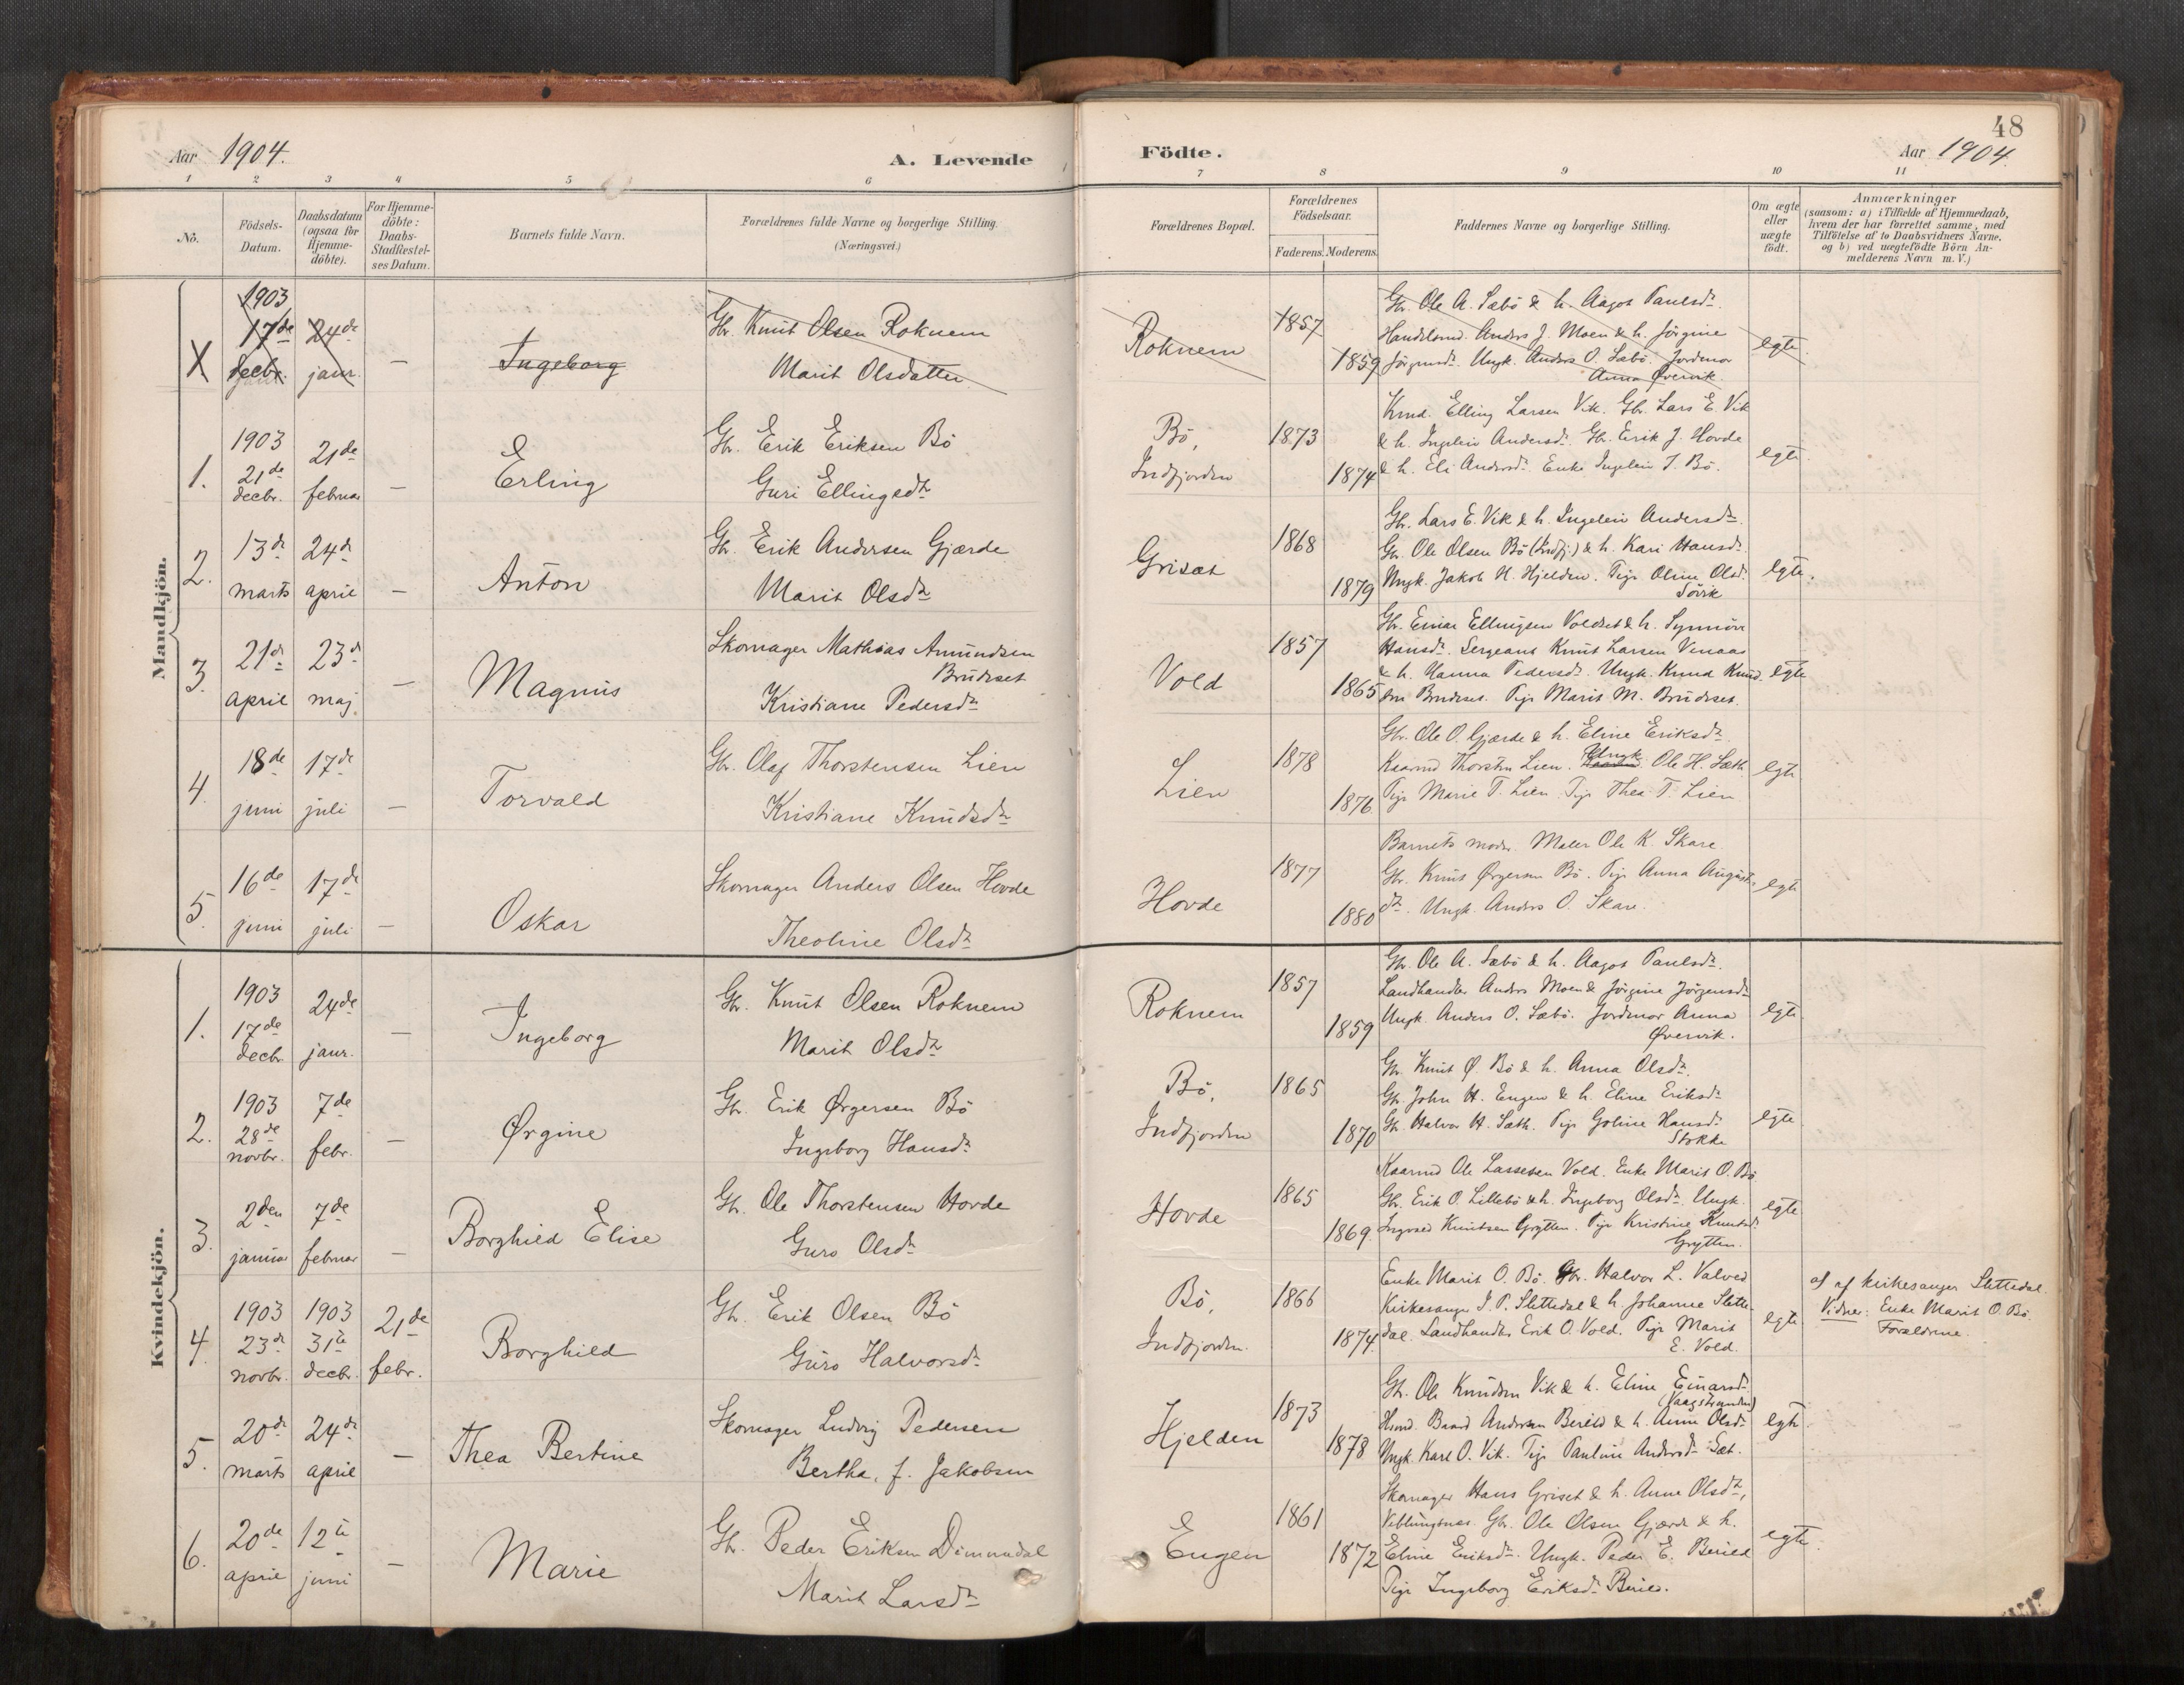 48
Aar 1904. A. Levende Födte. Aar 1904.
1 2 3 4 5 6 7 8 9 10 11
No.
Födsels-Datum.
Daabsdatum (ogsaa for Hjemme-döbte).
For Hjemme-döbte: Daabs-Stadfæstel-ses Datum.
Barnets fulde Navn.
Forældrenes fulde Navne og borgerlige Stilling. (Næringsvei.)
Forældrenes Bopæl.
Forældrenes Födselsaar.
Faderens. Moderens.
Faddernes Navne og borgerlige Stilling.
Om ægte eller uægte födt.
Anmærkninger
(saasom: a) i Tilfælde af Hjemmedaab,
hvem der har forrettet samme, med
Tilföielse af to Daabsvidners Navne,
og b) ved uægtefödte Börn An-
melderens Navn m.V.)
Mandkjön.
1903 17de decbr. 24de janr. — Ingeborg
Gbr. Knut Olsen Roknem
Marit Olsdatter
Roknem 1857 1859
Gbr. Ole A. Sæbö & h. Aagot Paulsdr.
Handelsmd. Anders J. Moen & h. Jörgine
Jörgensdr. Ungk. Anders O. Sæbö. Jordmor
Anna Øvervik
egte
1. 1903 21de decbr. 21de februar — Erling
Gbr. Erik Eriksen Bö
Guri Ellingsdr
Bö, Indfjorden 1873 1874
Kmd. Elling Larsen Vik. Gbr. Lars E. Vik
& h. Ingelein Andersdr. Gbr. Erik J. Hovde
& h. Eli Andersdr. Enke Ingelein J. Bö.
egte
2. 13de marts 24de april — Anton
Gbr. Erik Andersen Gjærde
Marit Olsdr
Grisæt 1868 1879
Gbr. Lars E. Vik & h. Ingelein Andersdr.
Gbr. Ole Olsen Bö (Indfj.) & h. Kari Hansdr.
Ungk. Jakob H. Hjelden. Pige Oline Olsdr.
Sövik
egte.
3. 21de april 23de maj. — Magnus
Skomager Mathias Amundsen
Brudeset
Kristiane Pedersdr
Vold 1857 1865
Gbr. Einar Ellingsen Voldset & h. Synnöve
Hansdr. Sergeant Knut Larsen Venaas
& h. Hanna Pedersdr. Ungk. Knud Knud-
sen Brudeset. Pige Marit M. Brudeset.
egte
4. 18de juni 17de juli — Torvald
Gbr. Olaf Thorstensen Lien
Kristiane Knudsdr
Lien 1878 1876
Gbr. Ole O. Gjærde & h. Eline Eriksdr.
Kaarmd Thorsten Lien. Ungk. Ole H. Sæth
Pige Marie T. Lien. Pige Thea T. Lien
egte
5. 16de juni 17de juli — Oskar
Skomager Anders Olsen Hovde
Theoline Olsdr
Hovde 1877 1880
Barnets moder. Maler Ole K. Skare.
Gbr. Knut Ørgersen Bö. Pige Anna August-
dr. Ungk. Anders O. Skare.
egte
Kvindekjön.
1. 1903 17de decbr. 24de janr. — Ingeborg
Gbr. Knut Olsen Roknem
Marit Olsdr
Roknem 1857 1859
Gbr. Ole A. Sæbö & h. Aagot Paulsdr.
Landhandler Anders Moen & Jörgine Jörgensdr
Ungk. Anders O. Sæbö. Jordmor Anna
Øvervik.
egte.
2. 1903 28de novbr. 7de febr. — Ørgine
Gbr. Erik Ørgersen Bö
Ingeborg Hansdr
Bö, Indfjorden 1865 1870
Gbr. Knut Ø. Bö & h. Anna Olsdr.
Gbr. John H. Engen & h. Eline Eriksdr
Gbr. Halvor H. Sæth. Pige Goline Hansdr
Stokke
egte.
3. 2den januar 7de februar — Borghild Elise
Gbr. Ole Thorstensen Hovde
Guro Olsdr
Hovde 1865 1869.
Kaarmd Ole Lassesen Vold. Enke Marit O. Bö
Gbr. Erik O. Lillebö & h. Ingeborg Olsdr. Ungk.
Ingvald Knutsen Grytten. Pige Kristine Knutsdr.
Grytten.
egte
4. 1903 23de novbr. 1903 31te decbr. 21de febr. Borghild
Gbr. Erik Olsen Bö
Guro Halvorsdr.
Bö, Indfjorden. 1866 1874.
Enke Marit O. Bö. Gbr. Halvor L. Valved
Kirkesanger J. P. Slettedal & h. Johanne Slette-
dal. Landhandler Erik O. Vold. Pige Marit
E. Vold.
egte
af kirkesanger Slettedal.
Vidner: Enke Marit O. Bö
Forældrene.
5. 20de marts 24de april — Thea Bertine
Skomager Ludvig Pedersen
Bertha, f. Jakobsen
Hjelden 1873 1878
Gbr. Ole Knudsen Vik & h. Eline Einarsdr.
(Vaagstranden)
Husmd. Baard Andersen Berild & h. Anne Olsdr
Ungk. Karl O. Vik. Pige Pauline Andersdr Sæt.
egte
6. 20de april 12te juni — Marie
Gbr. Peder Eriksen Dimmedal
Marit Larsdr
Engen 1861 1872
Skomager Hans Griset & h. Anne Olsdr,
Veblungsnes. Gbr. Ole Olsen Gjærde & h.
Eline Eriksdr. Ungk. Peder E. Berild
Pige Ingeborg Eriksdr. Berild.
egte.